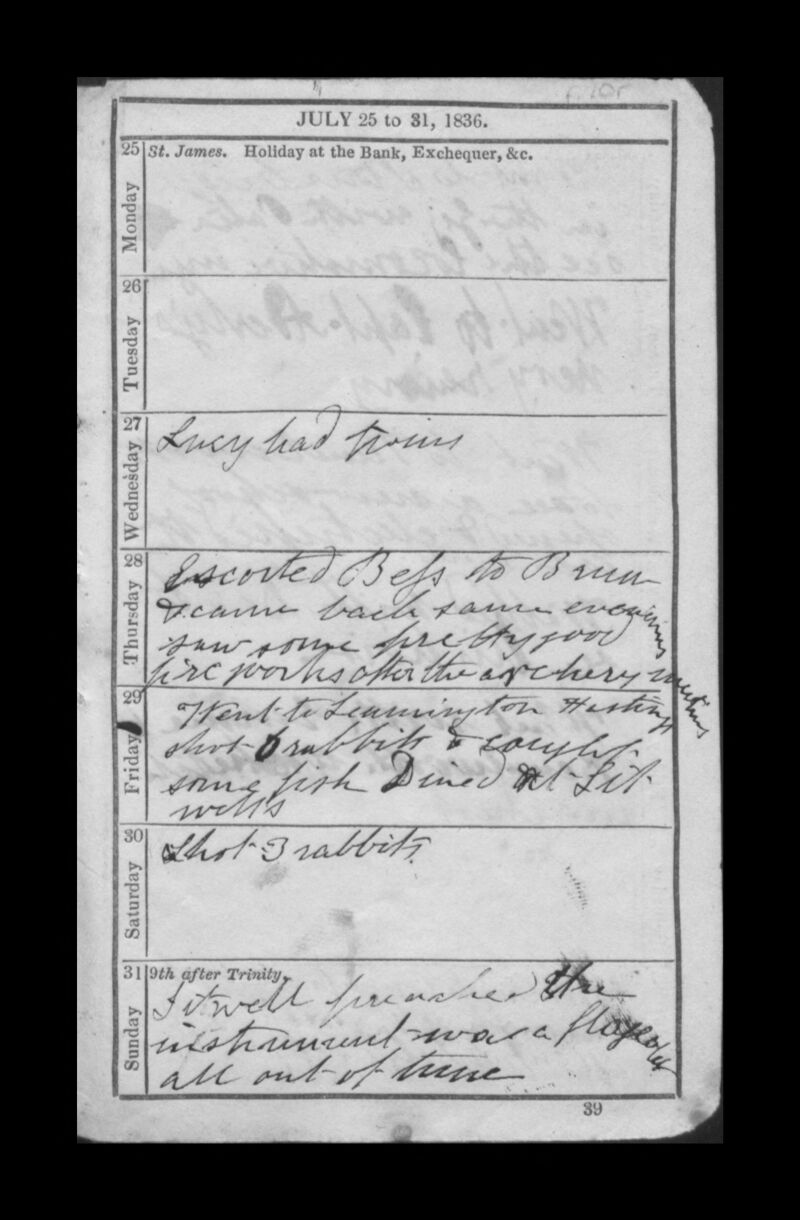 f.10r
JULY 25 to 31, 1836.
25 St. James. Holiday at the Bank, Exchequer, &c.
Monday
26
Tuesday
27
Wednesday
Lucy had twins
28
Thursday
Escorted Bess to
& came back same evening
saw some pretty good
fire works after the archery meeting
29
Friday
Went to Leamington Hastings
shot 6 rabbits & caught
some fish Dined at Sit
wells
30
Saturday
Shot 3 rabbits
31 9th after Trinity.
Sunday
Sitwell preached the
instrument was a flageolet
all out of tune
39